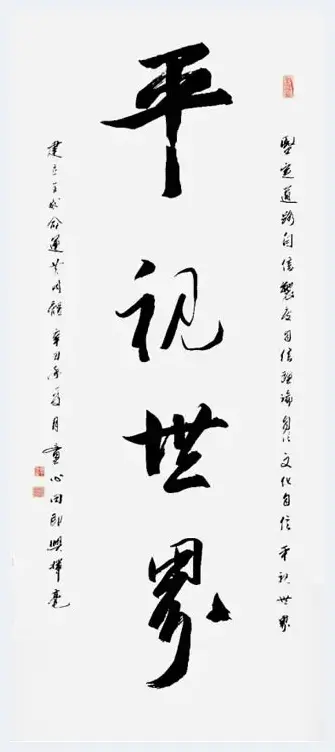 堅定道路自信製度自信理論自信文化自信 平視世界
平視世界
建立全球命運共同體辛丑年月童心田即興揮毫